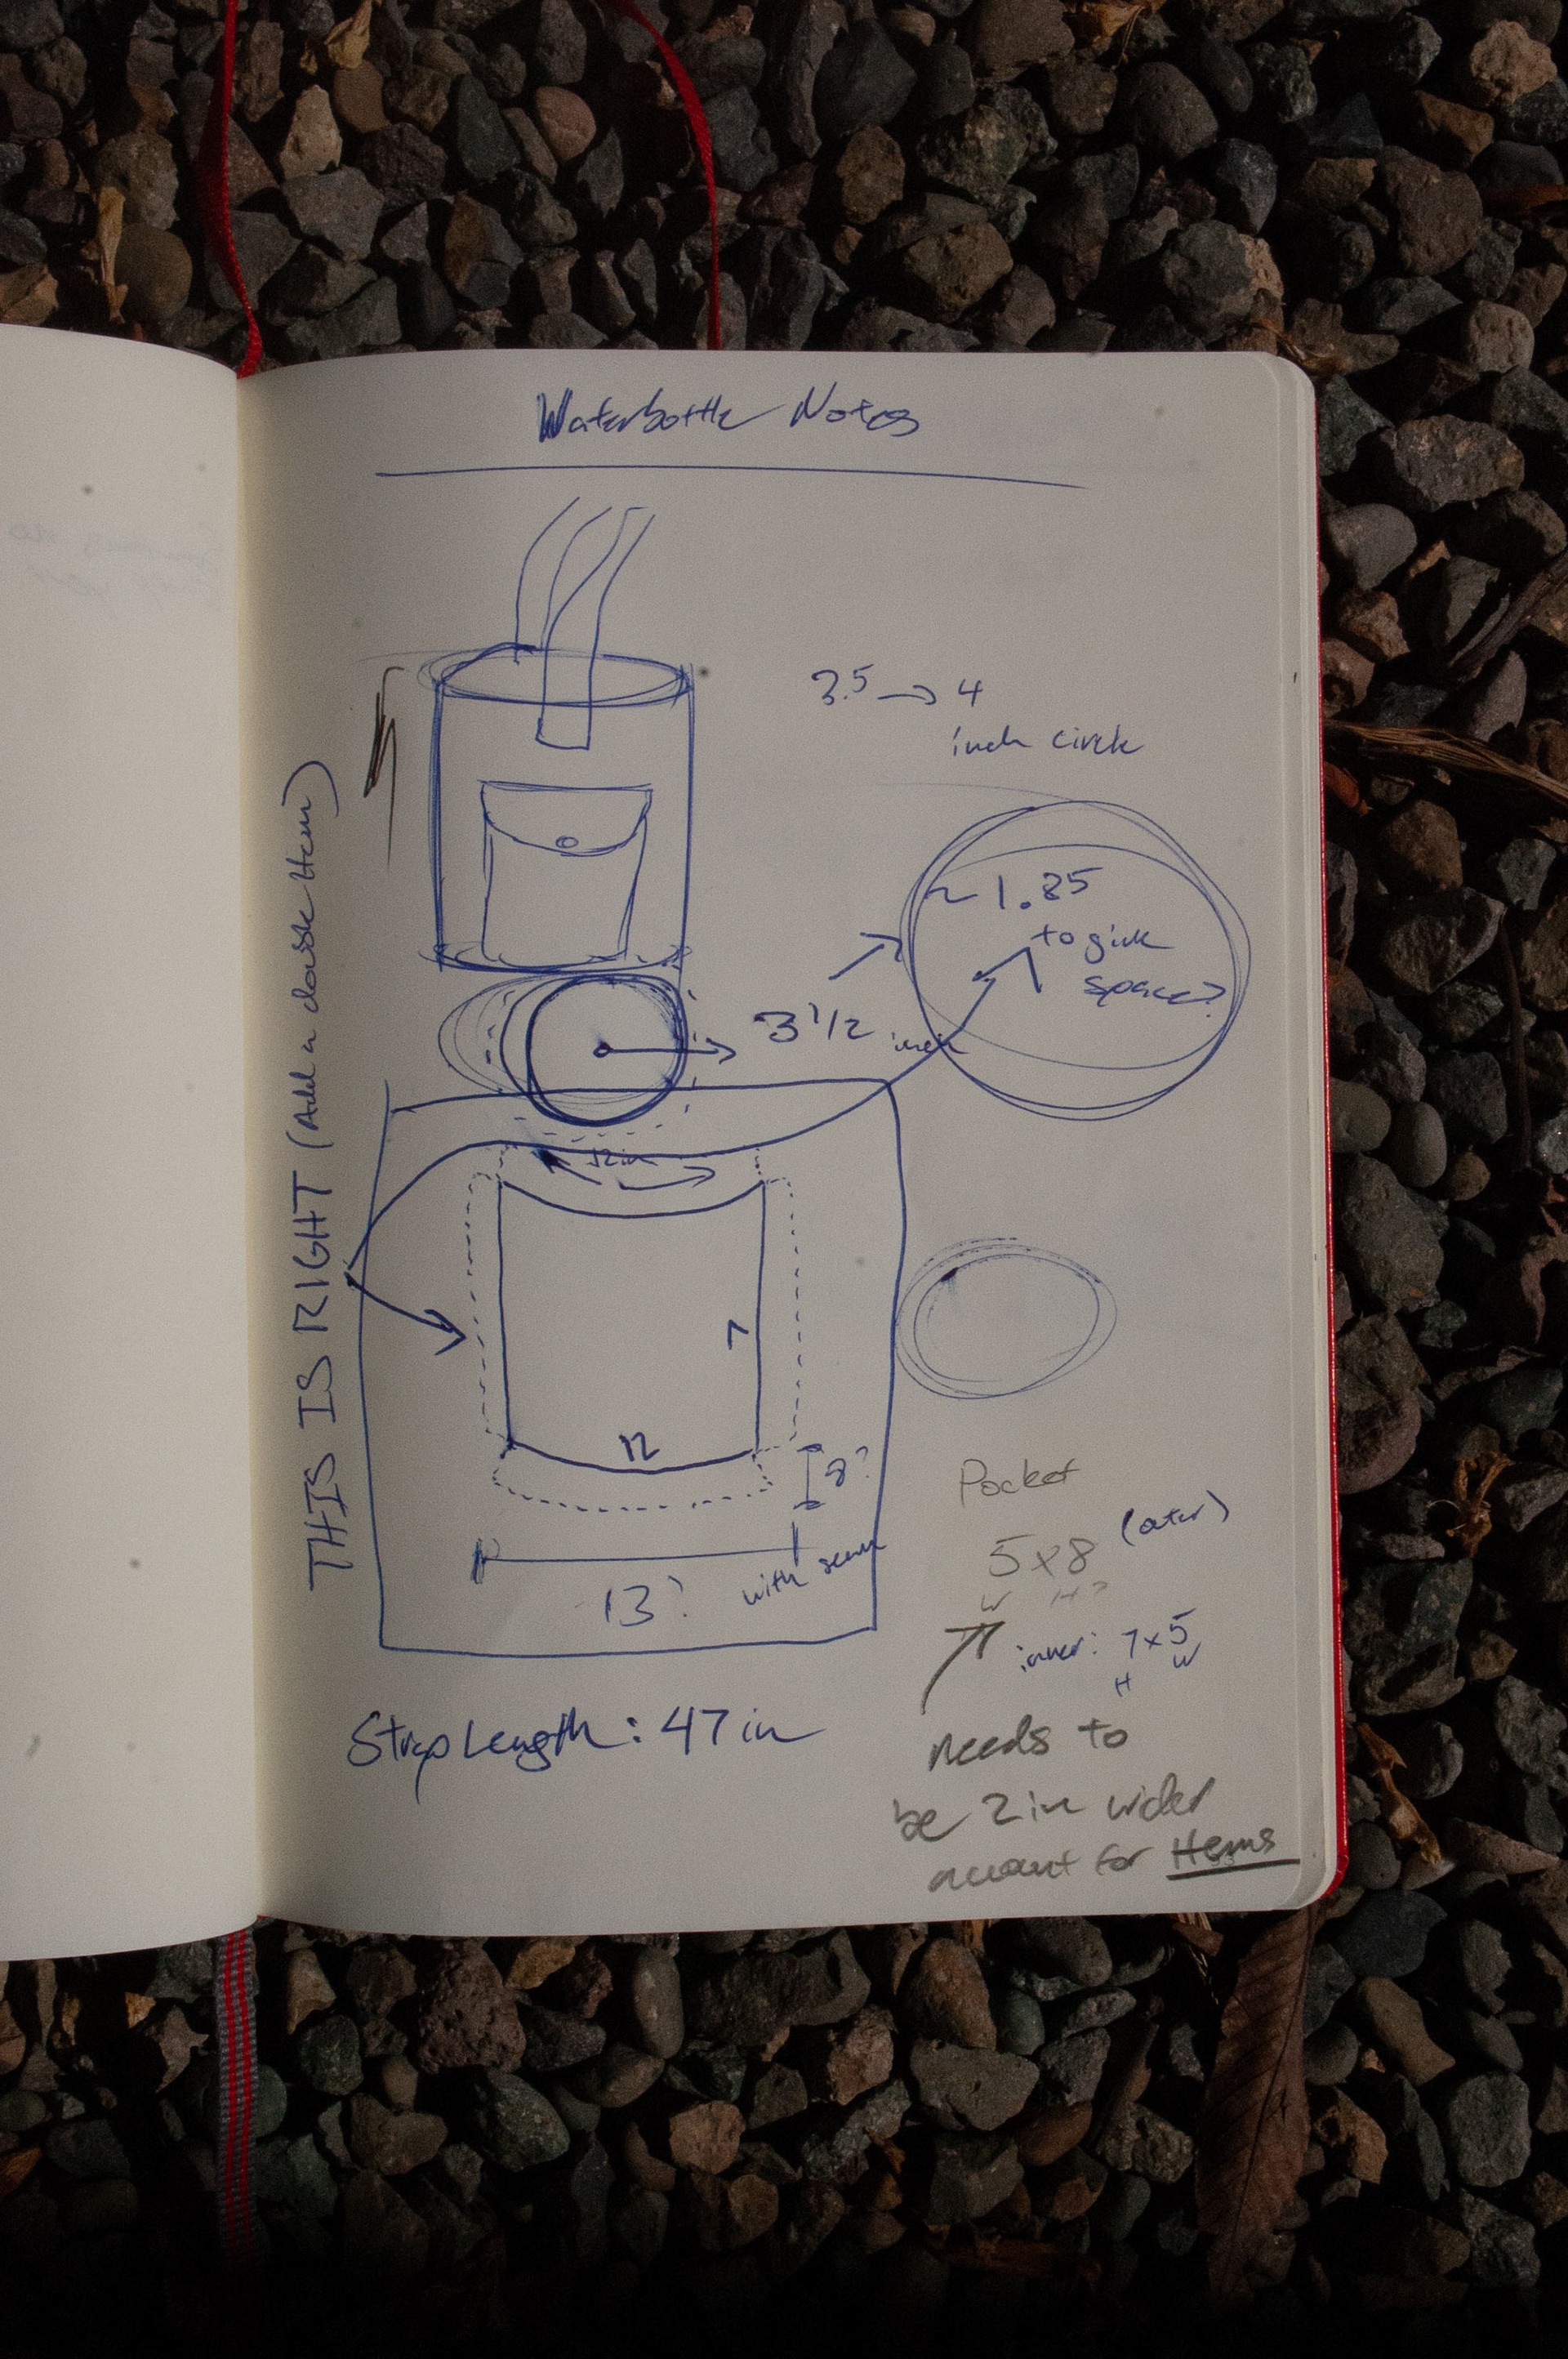 Waterbottle Notes
3.5 → 4
inch circle
~ 1.85
to give
space?
3 1/2 inch
12 in
7
12
8?
13? with seam
THIS IS RIGHT (Add a double Hem)
Pocket
5 x 8 (outer)
W H?
inner: 7 x 5
H W
Needs to
be 2 in wider
account for Hems
Strap Length: 47 in